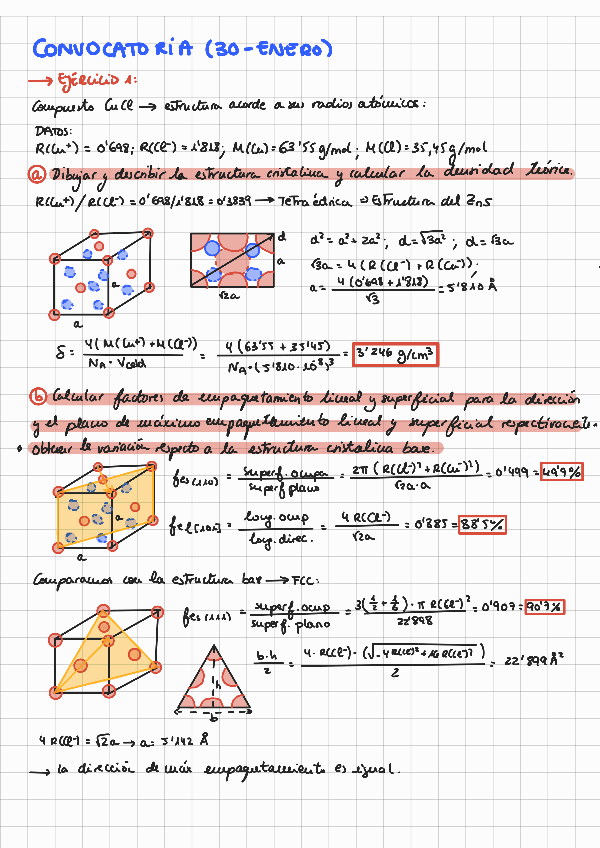 CONVOCATORIA (30-ENERO)
→ EJERCICIO 1:
Compuesto CuCl → estructura acorde a sus radios atómicos:
DATOS:
R(Cu⁺) = 0'698; R(Cl⁻) = 1'818; M(Cu) = 63'55 g/mol; M(Cl) = 35,45 g/mol
a) Dibujar y describir la estructura cristalina y calcular la densidad teórica.
R(Cu⁺)/R(Cl⁻) = 0'698/1'818 = 0'3839 → Tetraédrica ⇒ Estructura del ZnS
a
a
d
a
√2a
d² = a² + 2a²; d = √3a²; d = √3a
√3a = 4(R(Cl⁻) + R(Cu⁺))
a = 4(0'698 + 1'818) / √3 = 5'810 Å
δ = 4(M(Cu⁺) + M(Cl⁻)) / NA · Vcelda = 4(63'55 + 35'45) / NA · (5'810 · 10⁻⁸)³ = 3'246 g/cm³
b) Calcular factores de empaquetamiento lineal y superficial para la dirección
y el plano de máximo empaquetamiento lineal y superficial respectivamente.
• Obtener la variación respecto a la estructura cristalina base.
a
a
fes(110) = superf. ocupa / superf plano = 2π(R(Cl⁻)² + R(Cu⁺)²) / √2a·a = 0'499 = 49'9%
fel[101] = long. ocup / long. direc. = 4R(Cl⁻) / √2a = 0'885 = 88'5%
Comparamos con la estructura base → FCC:
fes(111) = superf. ocup / superf. plano = 3(1/2 + 1/6) · π R(Cl⁻)² / 22'898 = 0'907 = 90'7%
h
b
b·h / 2 = 4·R(Cl⁻)·(√-4R(Cl⁻)² + 16R(Cl⁻)²) / 2 = 22'899 Å²
4R(Cl⁻) = √2a → a = 5'142 Å
→ la dirección de máx empaquetamiento es igual.